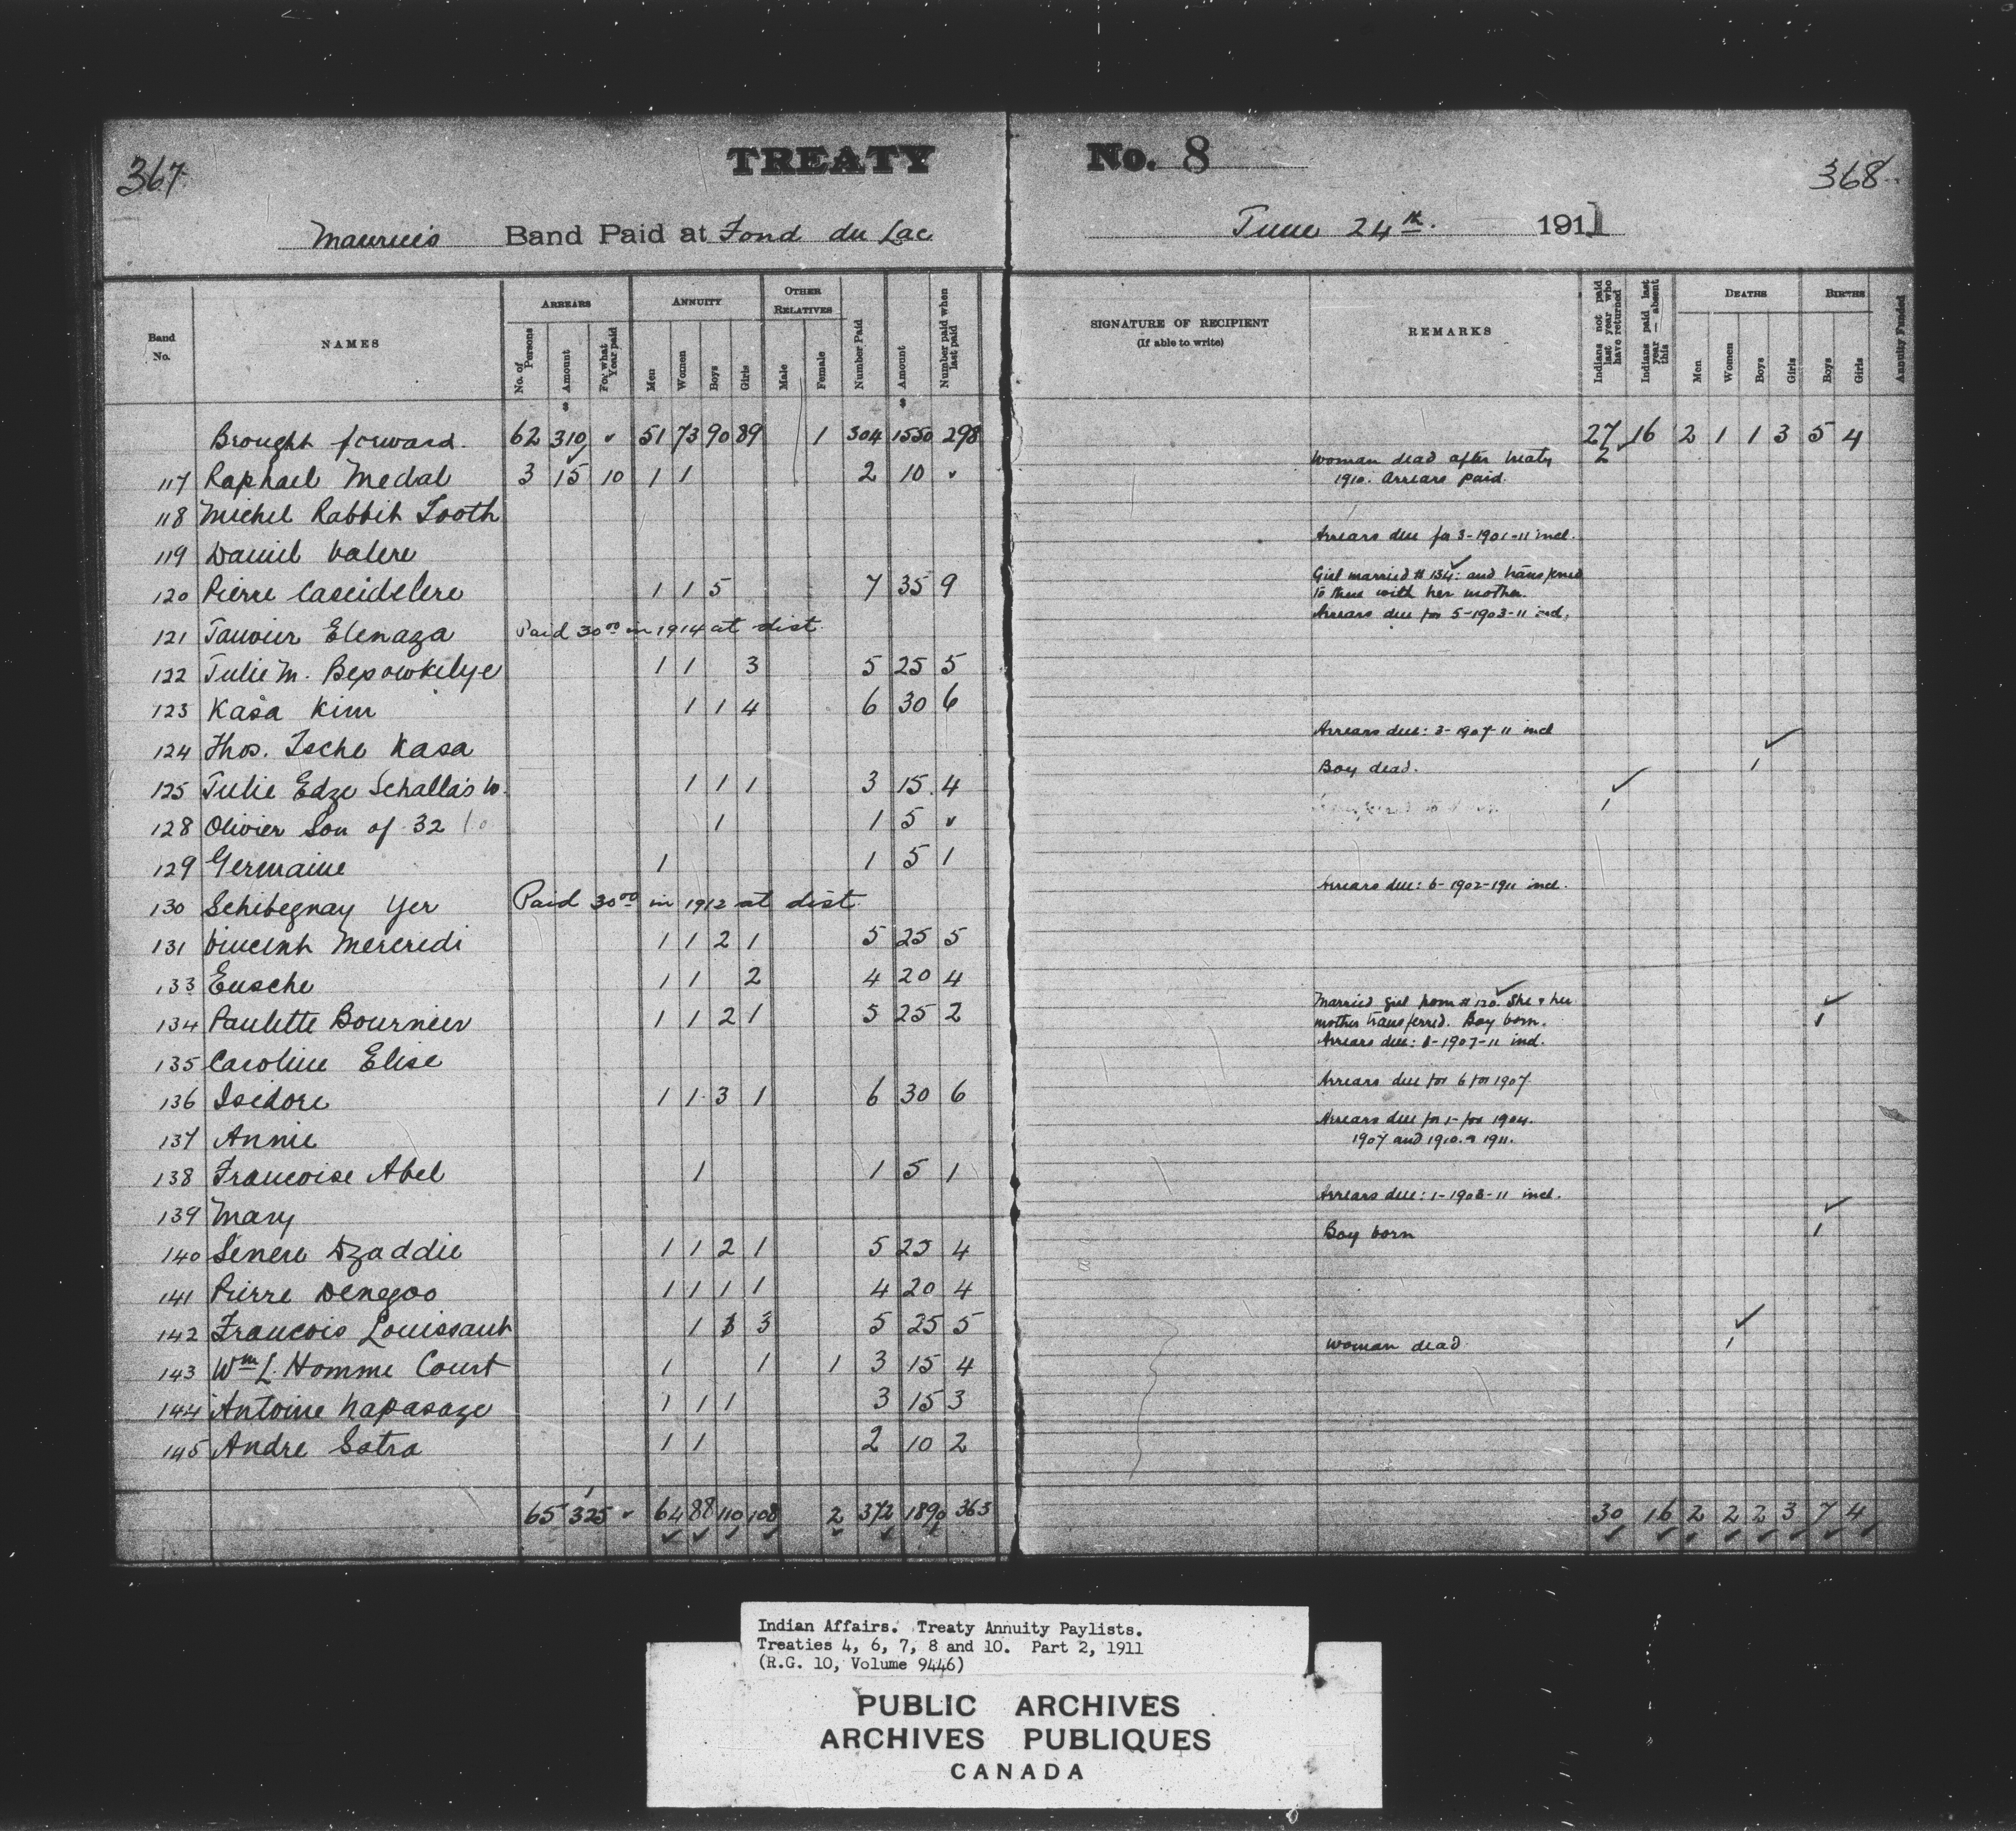 367
TREATY No. 8
368
Maurice's Band Paid at Fond du Lac June 24th. 1911
Band No.
NAMES
ARREARS
No. of Persons
Amount $
For what Year paid
ANNUITY
Men
Women
Boys
Girls
OTHER RELATIVES
Male
Female
Number Paid
Amount $
Number paid when last paid
SIGNATURE OF RECIPIENT
(If able to write)
REMARKS
Indians not paid last year who have returned
Indians paid last year — absent this
DEATHS
Men
Women
Boys
Girls
BIRTHS
Boys
Girls
Annuity Funded
Brought forward. 62 310 ✓ 51 73 90 89 1 304 1550 298 27 16 2 1 1 3 5 4
117 Raphael Medal 3 15 10 1 1 2 10 ✓ Woman dead after treaty 2
1910. Arrears paid.
118 Michel Rabbit Tooth
Arrears due for 3-1901-11 incl.
119 Daniel Valere
120 Pierre Caseidelere 1 1 5 7 35 9 Girl married #134 and transferred
to there with her mother.
Arrears due for 5-1903-11 incl.
121 Tauvier Elenaza Paid 30.00 in 1914 at dist.
122 Julie M. Bepowkelye 1 1 3 5 25 5
123 Kasa Kim 1 1 4 6 30 6
Arrears due: 3-1907-11 incl
124 Thos. Tsche Kasa
125 Julie Edze Schalla's W. 1 1 1 3 15 4 Boy dead. 1
128 Olivier Son of 32 1 1 5 ✓ 1
129 Germaine 1 1 5 1
Arrears due: 6-1902-1911 incl.
130 Schibegnay Yer Paid 30.00 in 1912 at dist
131 Vincent Mercredi 1 1 2 1 5 25 5
133 Eusche 1 1 2 4 20 4
134 Paulette Bournier 1 1 2 1 5 25 2 Married girl from #120. She & her
mother transferred. Boy born. 1
Arrears due: 8-1907-11 incl.
135 Caroline Elise
136 Isidore 1 1 3 1 6 30 6 Arrears due for 6 for 1907
Arrears due for 1- for 1904.
137 Annie 1907 and 1910. & 1911.
138 Francoise Abel 1 1 5 1
Arrears due: 1-1908-11 incl.
139 Mary
140 Senere Dzaddie 1 1 2 1 5 25 4 Boy born 1
141 Pierre Denegoo 1 1 1 1 4 20 4
142 Francois Louissant 1 1 3 5 25 5
143 Wm L. Homme Court 1 1 1 3 15 4 Woman dead 1
144 Antoine Napasaze 1 1 1 3 15 3
145 Andre Satra 1 1 2 10 2
65 325 ✓ 64 88 110 108 2 372 1890 363 30 16 2 2 2 3 7 4
Indian Affairs. Treaty Annuity Paylists.
Treaties 4, 6, 7, 8 and 10. Part 2, 1911
(R.G. 10, Volume 9446)
PUBLIC ARCHIVES
ARCHIVES PUBLIQUES
CANADA